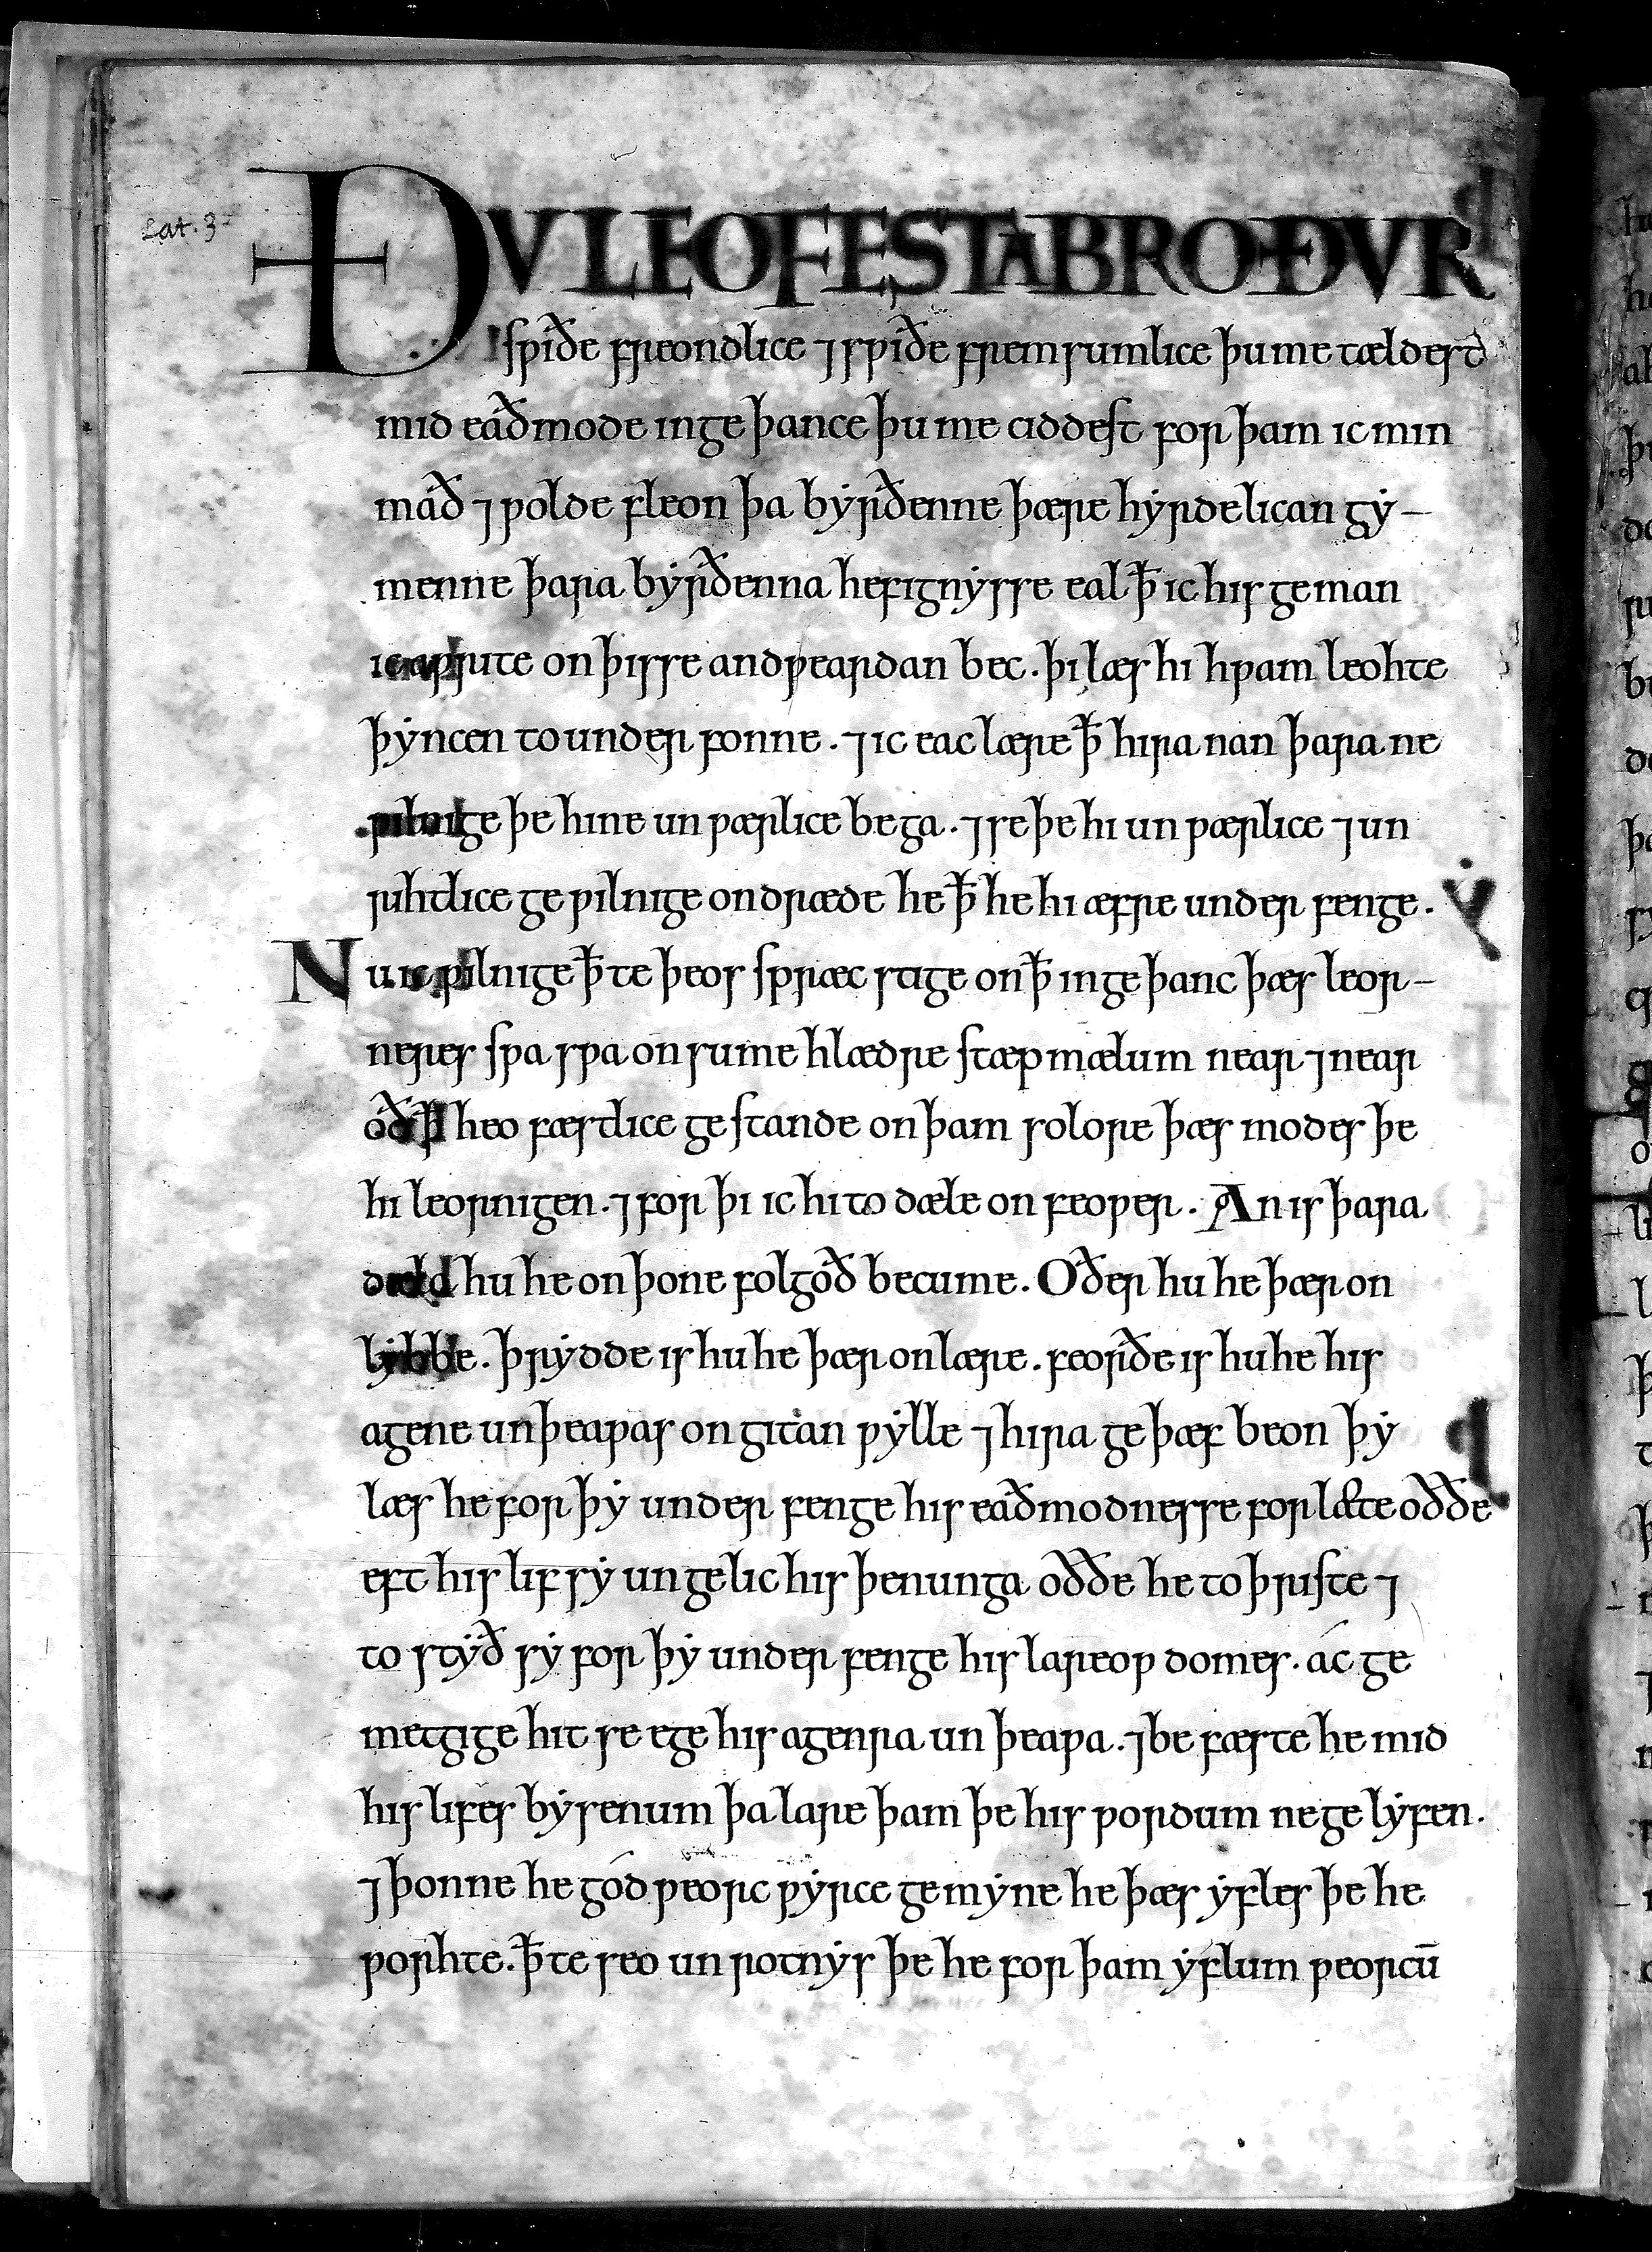 Lat. 3
ÐU LEOFESTA BROÐUR
swiðe freondlice ⁊ swiðe fremsumlice þu me tældest
mid eáðmode inge þance þu me ciddest for þam ic min
máð ⁊ wolde fleon þa byrðenne þære hyrdelican gy-
menne þara byrðenna hefignysse eal ꝥ ic his geman
ic awrite on þisse andweardan bec. þi læs hi hwam leohte
þyncen to under fonne. ⁊ ic eac lære ꝥ hira nan þara ne
wilnige þe hine un wærlice bega. ⁊ se þe hi un wærlice ⁊ un
rihtlice ge wilnige ondræde he ꝥ he hi æfre under fenge.
Nu ic wilnige ꝥ te þeos spræc stige on ꝥ inge þanc þæs leor-
neres swa swa on sume hlædre stæp mælum near ⁊ near
óð ꝥ heo fæstlice ge stande on þam solore þæs modes þe
hi leornigen. ⁊ for þi ic hi to dæle on feower. An is þara
dæla hu he on þone folgóð becume. Oðer hu he þær on
lybbe. þrydde is hu he þær on lære. feorðe is hu he his
agene unþeawas on gitan wylle ⁊ hira ge þæf beon þy
læs he for þy under fenge his eaðmodnesse for læte oððe
eft his lif sy un gelic his þenunga oððe he to þriste ⁊
to styð sy for þy under fenge his lareow domes. ác ge
metgige hit se ege his agenra un þeawa. ⁊ be fæste he mid
his lifes bysenum þa lare þam þe his wordum ne ge lyfen.
⁊ þonne he gód weorc wyrce ge myne he þæs yfles þe he
worhte. ꝥ te seo un rotnys þe he for þam yflum weorcū